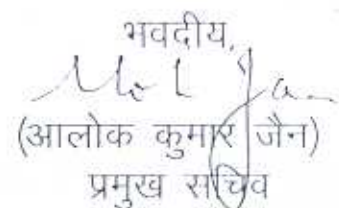 भवदीय,
(आलोक कुमार जैन)
प्रमुख सचिव